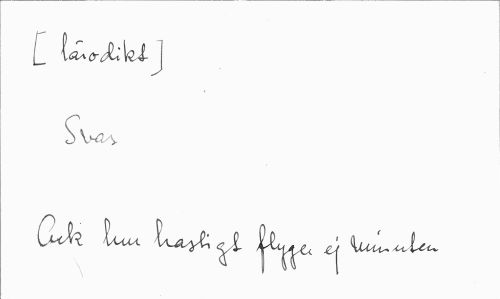 [lärodikt]
Svar
Ack hur hastigt flyger ej minuten